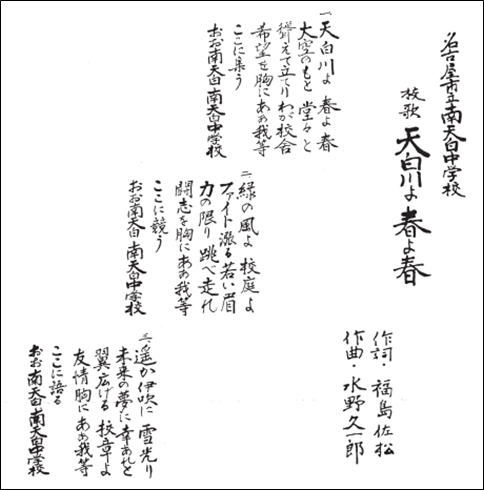 名古屋市立南天白中学校
校歌 天白川よ 春よ春
作詞・福島佐松
作曲・水野久一郎
一、天白川よ 春よ春
大空のもと 堂々と
聳えて立てり わが校舎
希望を胸に ああ我等
ここに集う
おお南天白 南天白中学校
二、緑の風よ 校庭よ
ファイト漲る 若い眉
力の限り 跳べ走れ
闘志を胸に ああ我等
ここに競う
おお南天白 南天白中学校
三、遥か伊吹に 雪光り
未来の夢に 幸あれと
翼広げる 校章よ
友情胸に ああ我等
ここに語る
おお南天白 南天白中学校